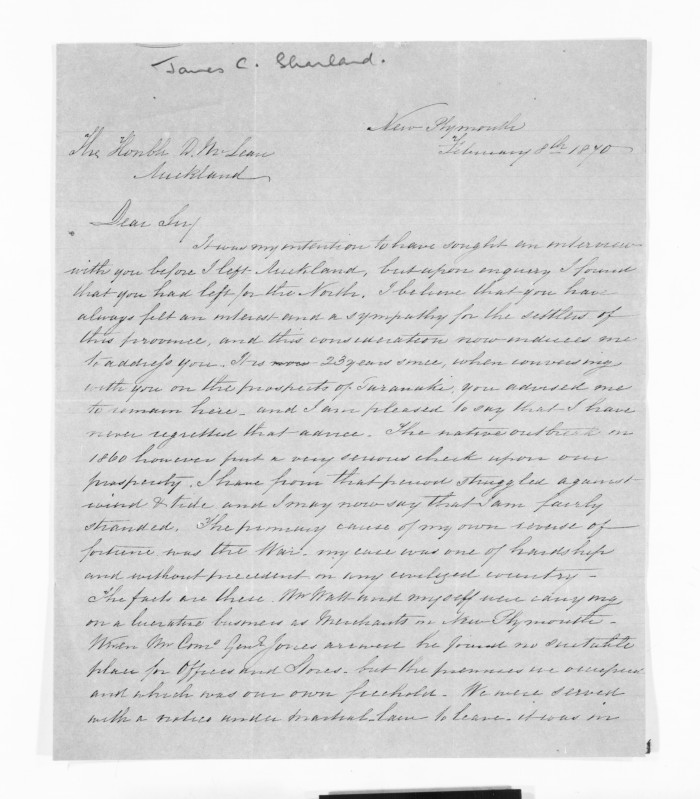 James C. Sharland.
New Plymouth
February 8th 1870
The Honble D. McLean
Auckland
Dear Sir,
It was my intention to have sought an interview
with you before I left Auckland, but upon enquiry I found
that you had left for the North. I believe that you have
always felt an interest and a sympathy for the settlers of
this province, and this consideration now induces me
to address you. It is now 23 years since, when conversing
with you on the prospects of Taranaki, you advised me
to remain here - and I am pleased to say that I have
never regretted that advice. The native outbreak in
1860 however put a very serious check upon our
prosperity. I have from that period struggled against
wind & tide and I may now say that I am fairly
stranded. The primary cause of my own reverse of
fortune was the War. my case was one of hardship
and without precedent in any civilized country -
The facts are these. Mr Watt and myself were carrying
on a lucrative business as Merchants in New Plymouth -
When Mr Comy Genl Jones arrived he found no suitable
place for Offices and Stores - but the premises we occupied
and which was our own freehold. We were served
with a notice under Martial-law to leave - it was in